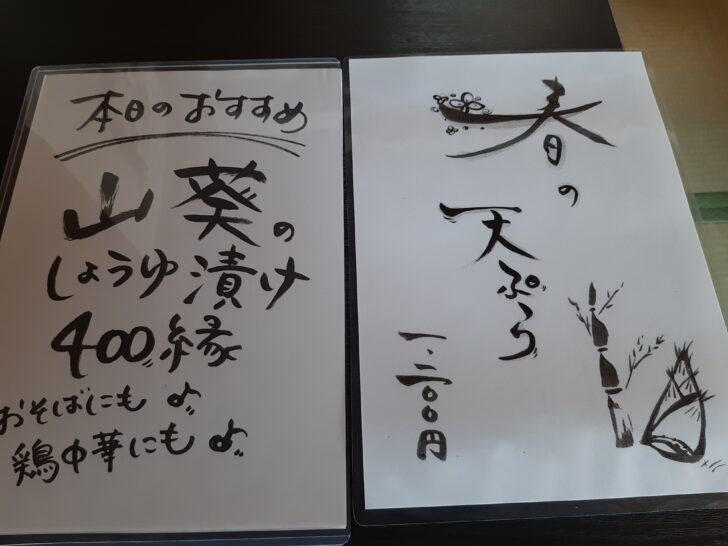 本日のおすすめ
山葵の
しょうゆ漬け
400縁
おそばにも♪
鶏中華にも♪
春の
天ぷら
一、二〇〇円